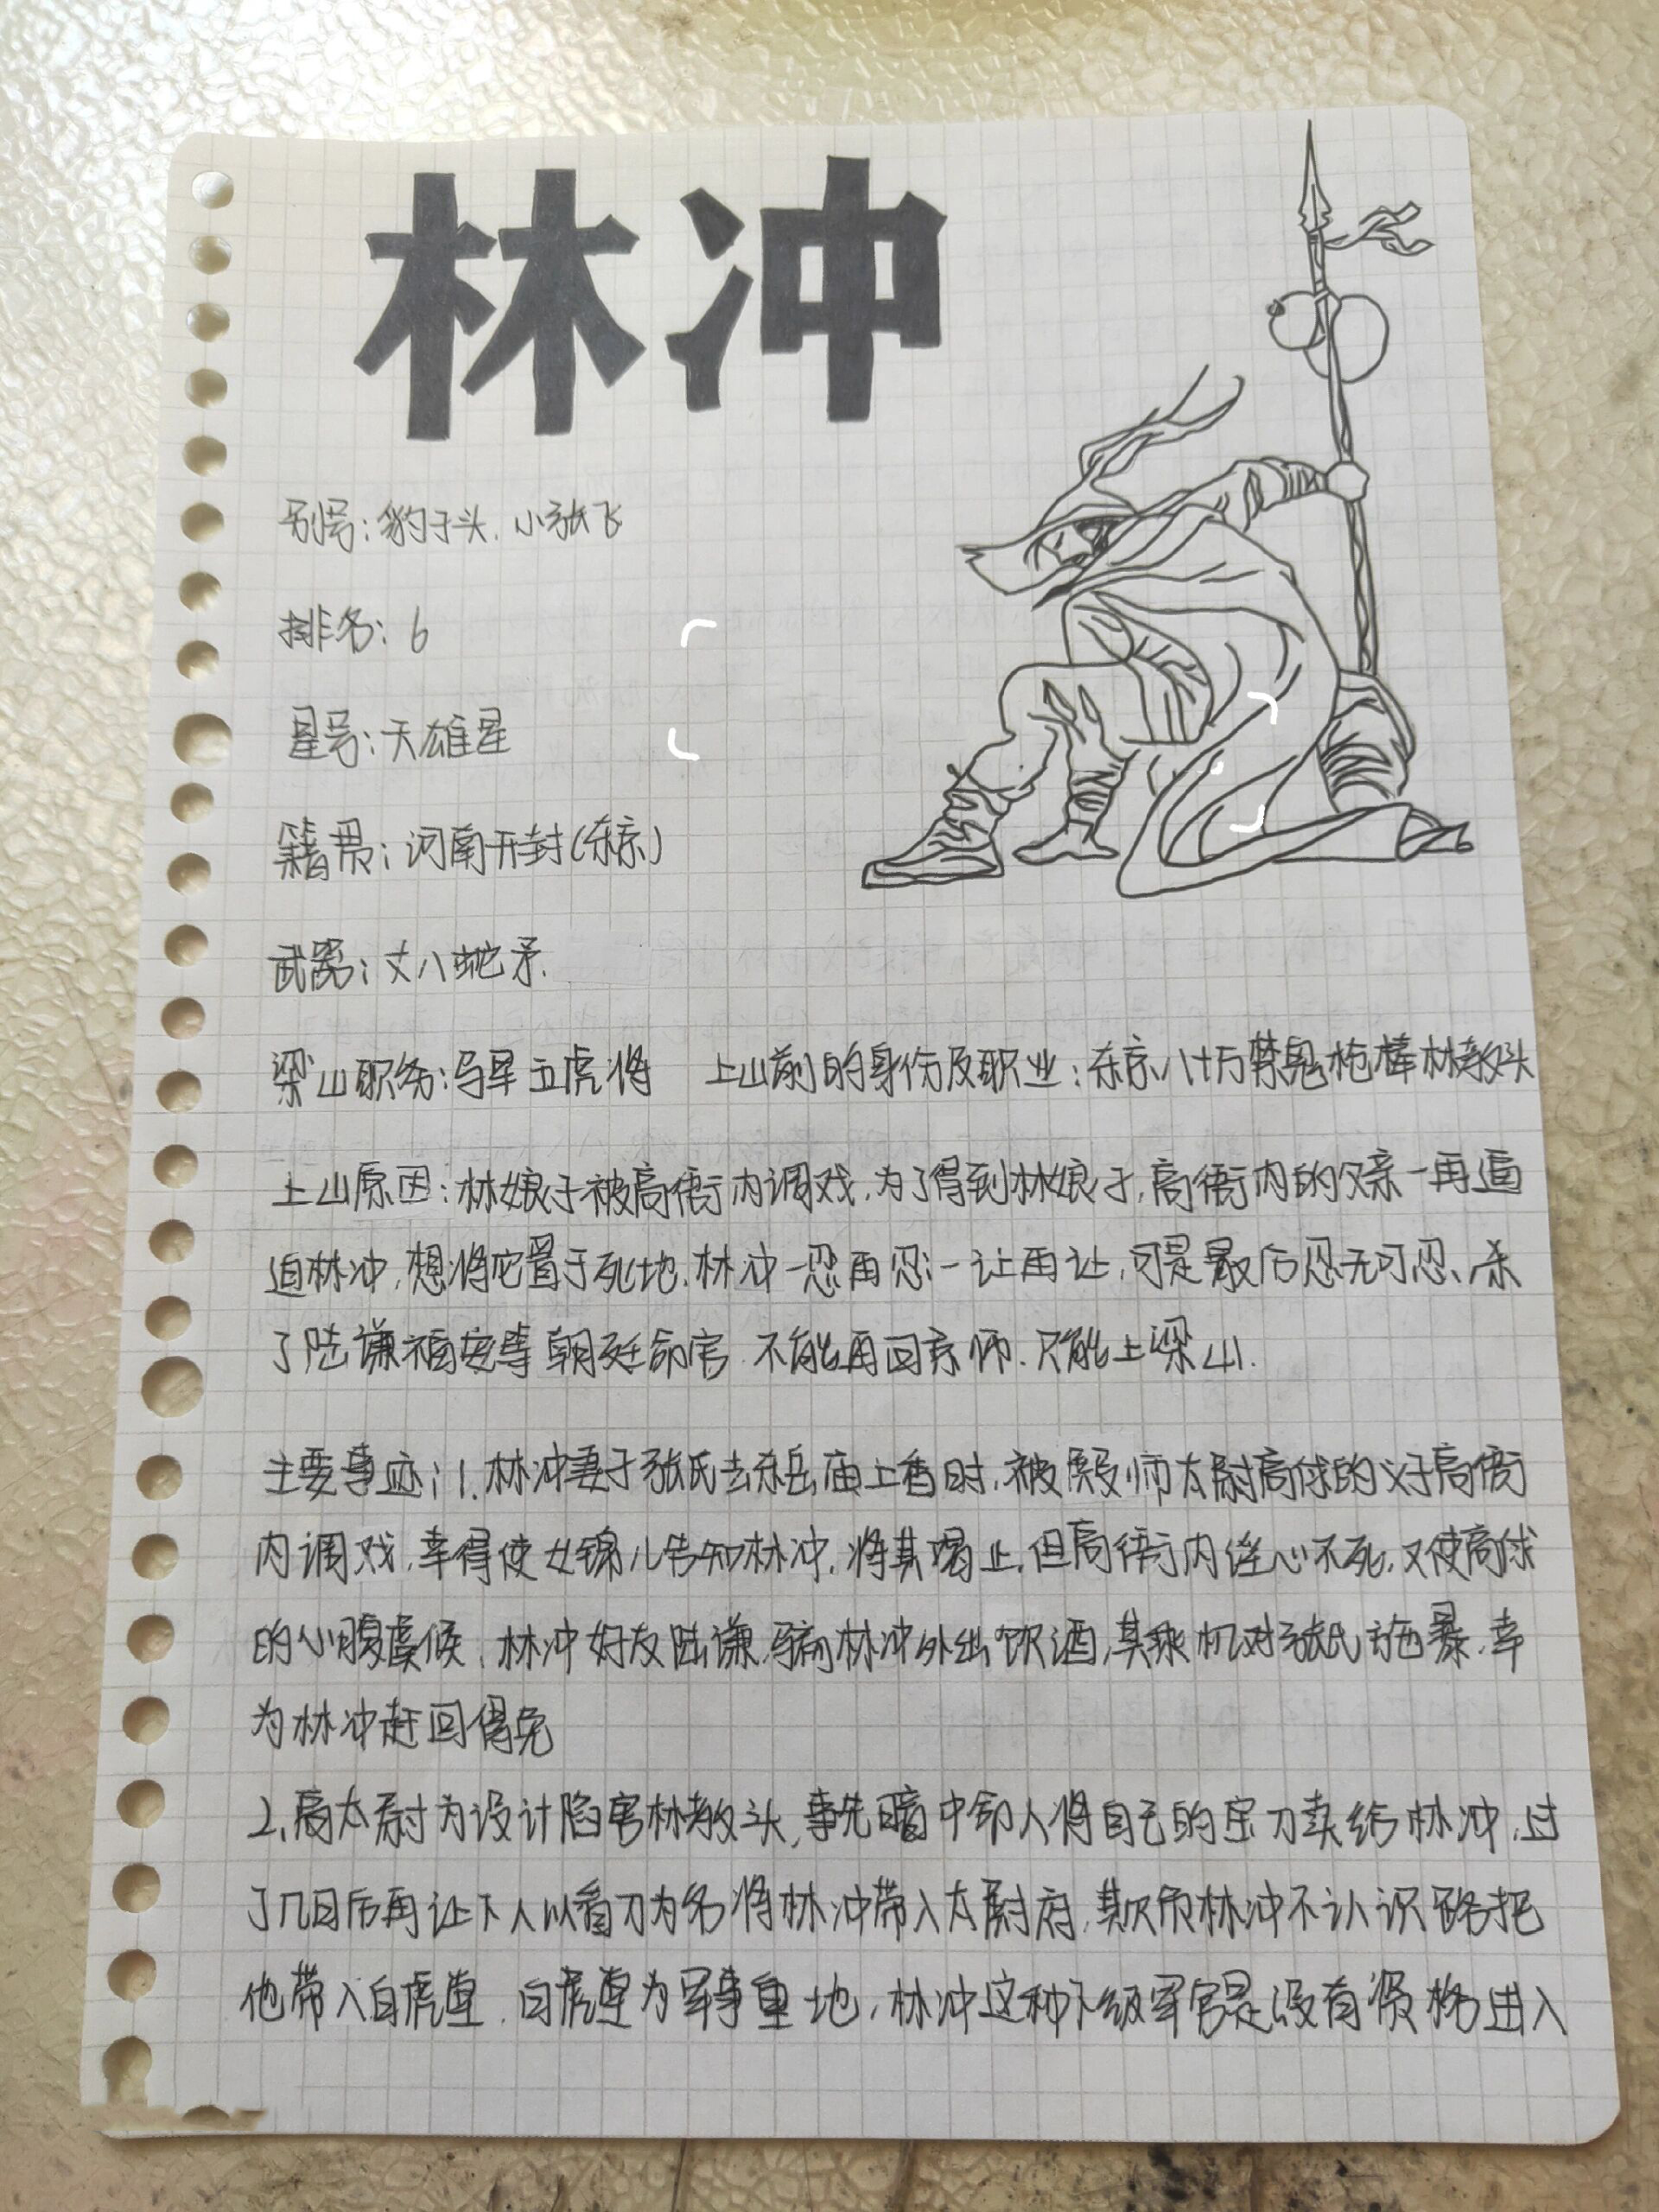 林冲
别号：豹子头、小张飞
排名：6
星号：天雄星
籍贯：河南开封（东京）
武器：丈八蛇矛.
梁山职务：马军五虎将 上山前的身份及职业：东京八十万禁军枪棒林教头
上山原因：林娘子被高衙内调戏，为了得到林娘子，高衙内的父亲一再逼
迫林冲，想将它置于死地，林冲一忍再忍一让再让，可是最后忍无可忍、杀
了陆谦福安等朝廷命官，不能再回京师，只能上梁山.
主要事迹：1.林冲妻子张氏去东岳庙上香时，被殿师太尉高俅的义子高衙
内调戏，幸得使女锦儿告知林冲，将其喝止，但高衙内淫心不死，又使高俅
的心腹虞候、林冲好友陆谦，骗林冲外出饮酒，其乘机对张氏施暴，幸
为林冲赶回得免
2、高太尉为设计陷害林教头，事先暗中命人将自己的宝刀卖给林冲，过
了几日后再让下人以看刀为名将林冲带入太尉府，欺负林冲不认识路把
他带入白虎堂，白虎堂为军事重地，林冲这种下级军官是没有资格进入